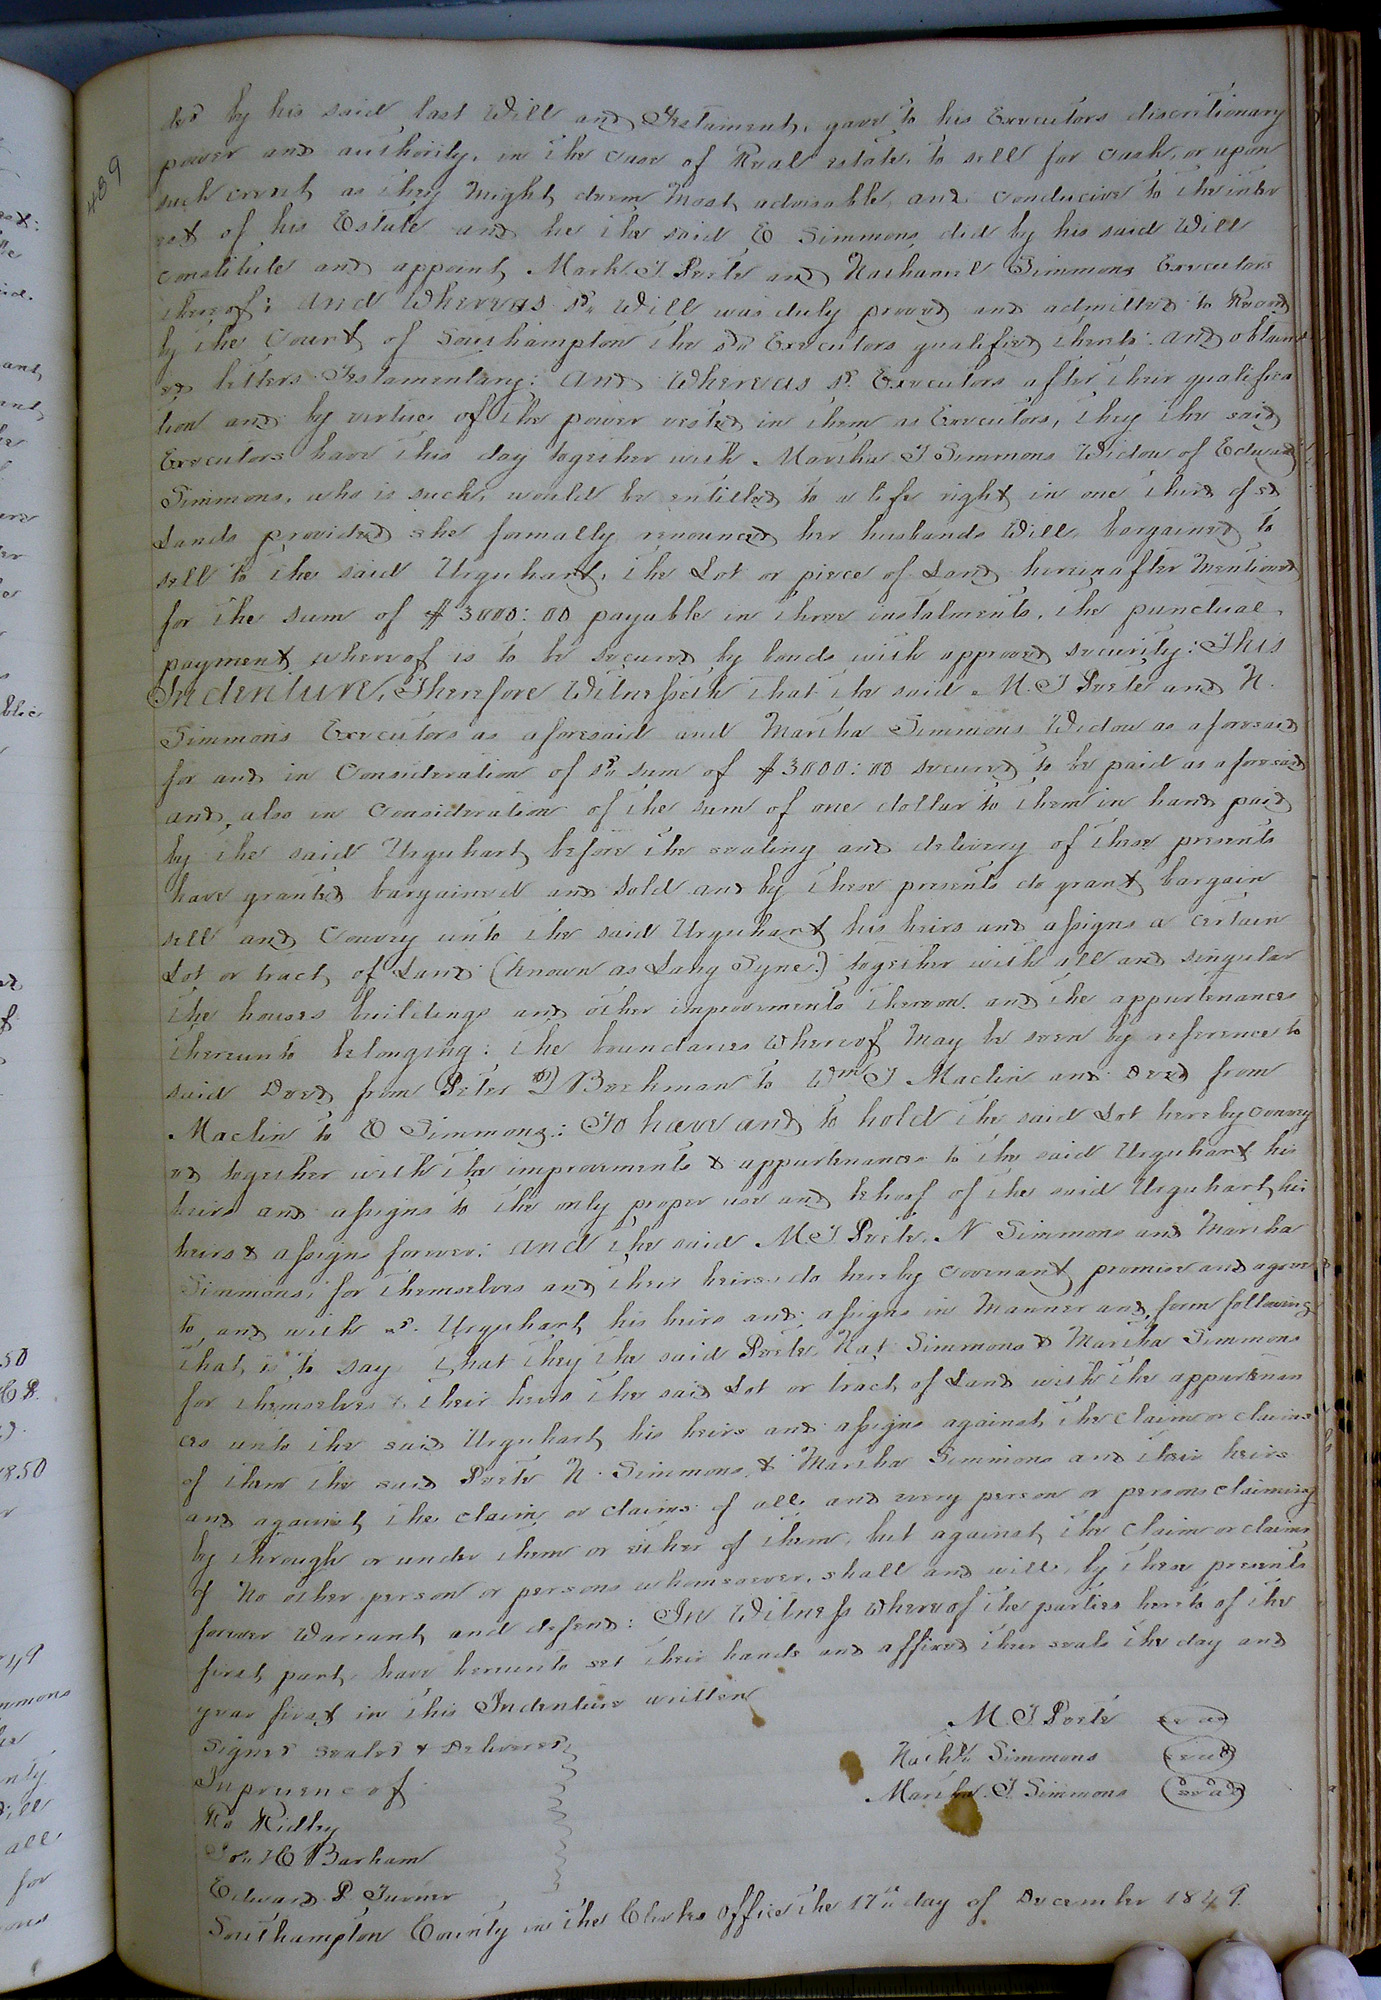 489
ded by his said last Will and Testament, gave to his Executors discretionary
power and authority, in the case of Real estate, to sell for cash, or upon
such credit as they Might deem Most advisable and conducive to the inter
est of his Estate and he the said E Simmons did by his said Will
constitute and appoint Mark T Porte and Nathaniel Simmons Executors
thereof: And Whereas sd. Will was duly proved and admitted to Record
by the Court of Southampton the sd. Executors qualified thereto and obtain
ed letters Testamentary: And Whereas sd. Executors after their qualifica
tion and by virtue of the power vested in them as Executors, they the said
Executors have this day together with Martha T Simmons Widow of Edward
Simmons, who is such, would be entitled to a life right in one third of sd
Lands provided she formally renounced her husbands Will, bargained to
sell to the said Urquhart, the Lot or piece of Land hereinafter Mentioned
for the sum of $3000:00 payable in three instalments, the punctual
payment whereof is to be secured by bonds with approved security: This
Indenture, Therefore Witnesseth that the said M. T Porte and N.
Simmons Executors as aforesaid and Martha Simmons Widow as aforesaid
for and in Consideration of sd. sum of $3000:00 secured to be paid as aforesaid
and also in Consideration of the sum of one dollar to them in hand paid
by the said Urquhart before the sealing and delivery of these presents
have granted bargained and sold and by these presents do grant bargain
sell and Convey unto the said Urquhart his heirs and assigns a certain
Lot or tract of Land (known as Lang Syne) together with all and singular
the houses buildings and other improvements thereon and the appurtenances
thereunto belonging: the boundaries whereof May be seen by reference to
said Deed from Peter Beekman to Wm T Maclin and Deed from
Maclin to E Simmons: To have and to hold the said Lot hereby convey
ed together with the improvements & appurtenances to the said Urquhart his
heirs and assigns to the only proper use and behoof of the said Urquhart, his
heirs & assigns forever: And the said M T Porte, N Simmons and Martha
Simmons, for themselves and their heirs do hereby covenant promise and agree
to and with sd. Urquhart his heirs and assigns in Manner and form following
that is to say that they the said Porte, Nat Simmons & Martha Simmons
for themselves & their heirs the said Lot or tract of Land with the appurtenan
ces unto the said Urquhart his heirs and assigns against the claim or claims
of them the said Porte N. Simmons, & Martha Simmons and their heirs
and against the claim or claims of all and every person or persons claiming
by through or under them or either of them, but against the claim or claims
of No other person or persons whomsoever, shall and will by these presents
forever Warrant and defend: In Witness whereof the parties hereto of the
first part have hereunto set their hands and affixed their seals the day and
year first in this Indenture written
M. T Porte seal
Signed Sealed & Delivered
Nathl. Simmons seal
In presence of
Martha. T Simmons seal
Ro Ridley
Jos. H Barham
Edward P. Turner
Southampton County in the Clerks Office the 17th day of December 1849.